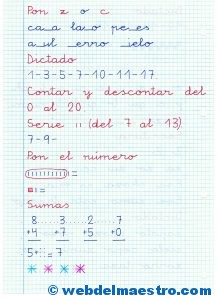 Pon z o c
ca_a la_o pe_es
a_ul _erro _ielo
Dictado
1-3-5-7-10-11-17
Contar y descontar del
0 al 20
Serie 11 (del 7 al 13)
7-9-
Pon el número
=
=
Sumas
8 3 2 7
+4 +7 +5 +0
5+ = 7
© webdelmaestro.com